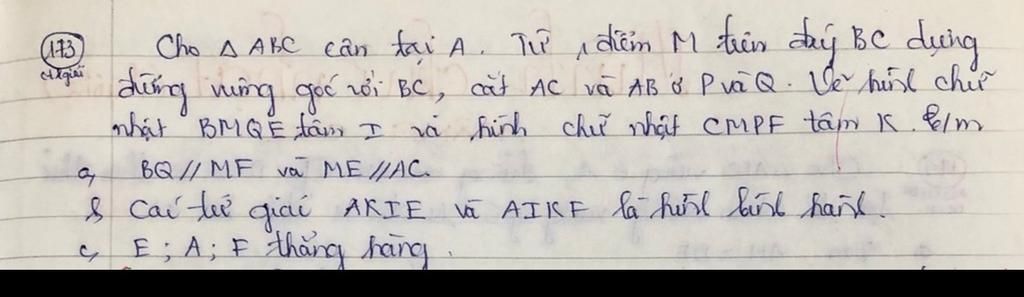 173 Cho △ ABC cân tại A. Từ 1 điểm M trên đáy BC dựng
đường vuông góc với BC, cắt AC và AB ở P và Q. Vẽ hình chữ
nhật BMQE tâm I và hình chữ nhật CMPF tâm K. C/m
a, BQ // MF và ME // AC.
b Các tứ giác AKIE và AIKF là hình bình hành.
c, E; A; F thẳng hàng.